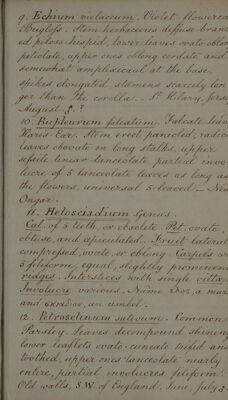 9. Echium violaceum. Violet flowered
Bugloss. Stem herbaceous diffuse branch
ed pilose hispid, lower leaves ovate oblong
petiolate, upper ones oblong cordate and
somewhat amplexicaul at the base,
spikes elongated, stamens scarcely lon
ger than the corolla. St Hilary, Jerse
August
10. Bupleurum falcatum. Falcate leave
Hares Ear. Stem erect panicled, radica
leaves obovate on long stalks, upper
sessile linear-lanceolate, partial invo
lucre of 5 lanceolate leaves as long as
the flowers, universal 5-leaved
Ongar.
11. Helosciadium Genus.
Cal. of 5 teeth, or obsolete. Pet. ovate,
obtuse, and apiculated. Fruit laterall
compressed, ovate, or oblong. Carpels wi
5 filiform, equal, slightly prominen
ridges. Interstices with single vittæ
Involucre various. Name ελος, a mars
and σκιαδιον, an umbel.
12. Petroselinum sativum. Common
Parsley. leaves decompound shining
lower leaflets ovato-cuneate trifid and
toothed, upper ones lanceolate nearly
entire, partial involucres filiform.
Old walls, S.W. of England. June, July